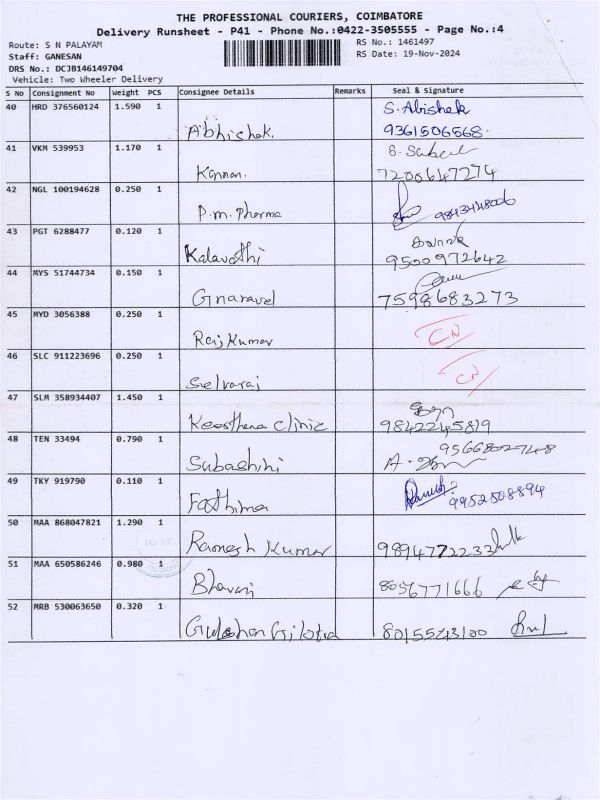 THE PROFESSIONAL COURIERS, COIMBATORE
Delivery Runsheet - P41 - Phone No.:0422-3505555 - Page No.:4
Route: S N PALAYAM
RS No.: 1461497
Staff: GANESAN
RS Date: 19-Nov-2024
DRS No.: DCJB146149704
Vehicle: Two Wheeler Delivery
S No Consignment No Weight PCS Consignee Details Remarks Seal & Signature
40 HRD 376560124 1.590 1 S. Abishek
Abhishek. 9361506568.
41 VKM 539953 1.170 1
Kannan. 7200647274
42 NGL 100194628 0.250 1
P.M. Pharma
43 PGT 6288477 0.120 1
Kalavathi 9500972642
44 MYS 51744734 0.150 1
Gnanavel 7598683273
45 MYD 3056388 0.250 1 CN
Raj Kumar
46 SLC 911223696 0.250 1 CN
Selvaraj
47 SLM 358934407 1.450 1
Keerthana Clinic 9842245819
48 TEN 33494 0.790 1
Subashini
49 TKY 919790 0.110 1
Fathima 9952508894
50 MAA 868047821 1.290 1
Ramesh Kumar 9894772233
51 MAA 650586246 0.980 1
Bhavani 8056771666
52 MRB 530063650 0.320 1
Gulshan 8015543100